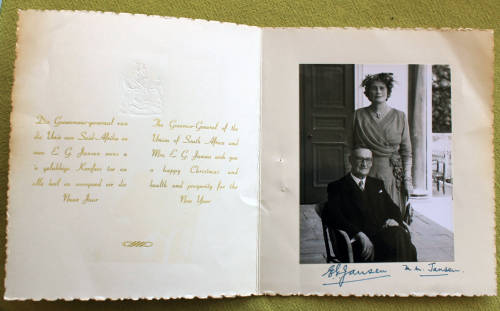 Die Goewerneur-generaal van
die Unie van Suid-Afrika en
mev. E. G. Jansen wens u
'n gelukkige Kersfees toe en
alle heil en voorspoed vir die
Nuwe Jaar
The Governor-General of the
Union of South Africa and
Mrs. E. G. Jansen wish you
a happy Christmas and
health and prosperity for the
New Year
EGJansen
M. M. Jansen.